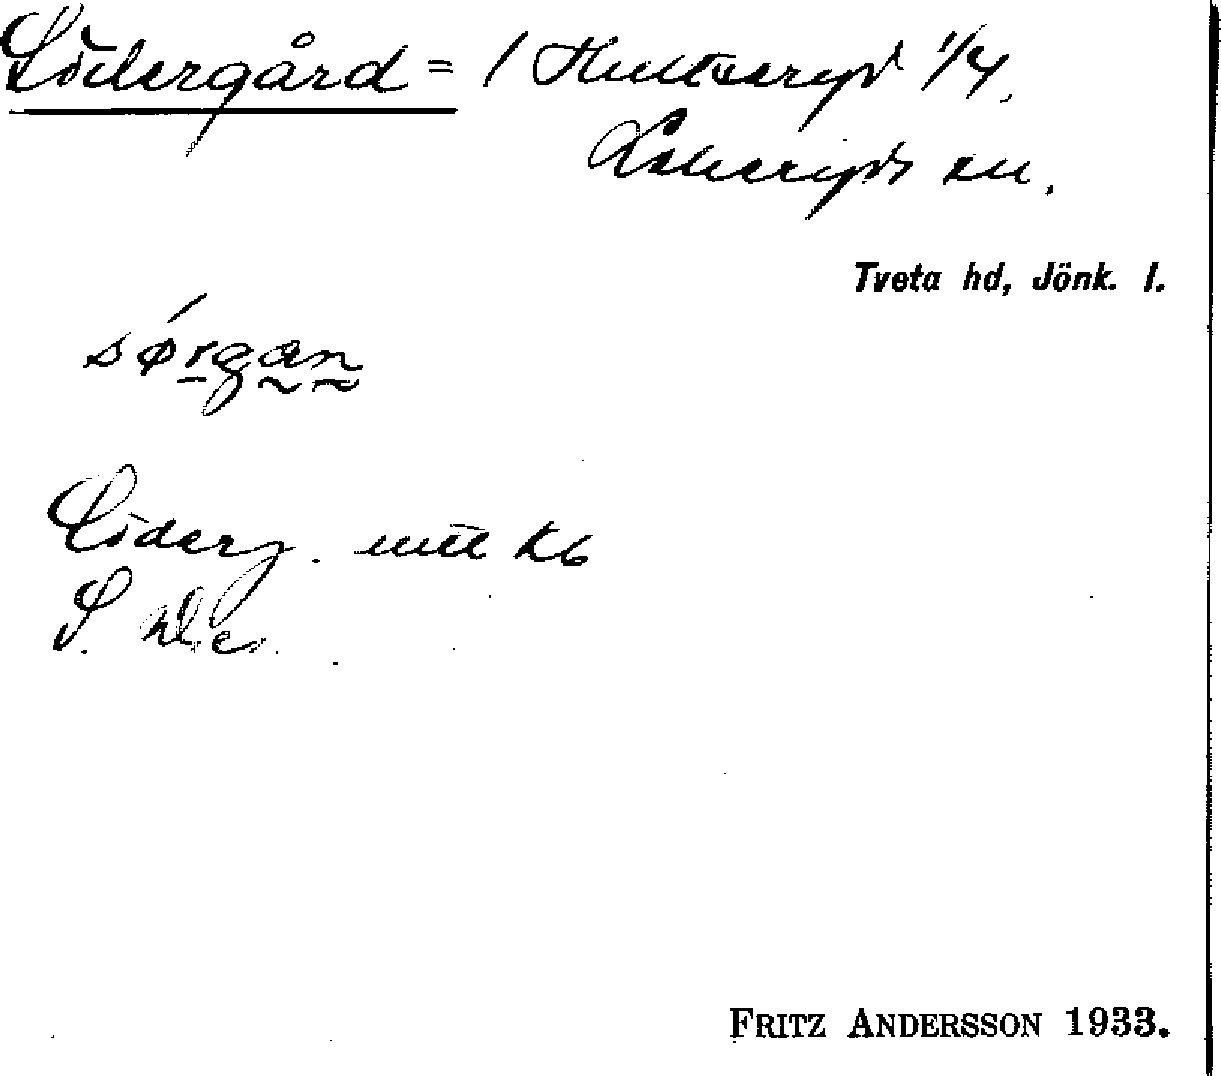 Södergård = / Hultseryd 1/4.
Lekeryds sn.
Tveta hd, Jönk. l.
sørgan
Söderg. mtl Kb
S. do.
FRITZ ANDERSSON 1933.